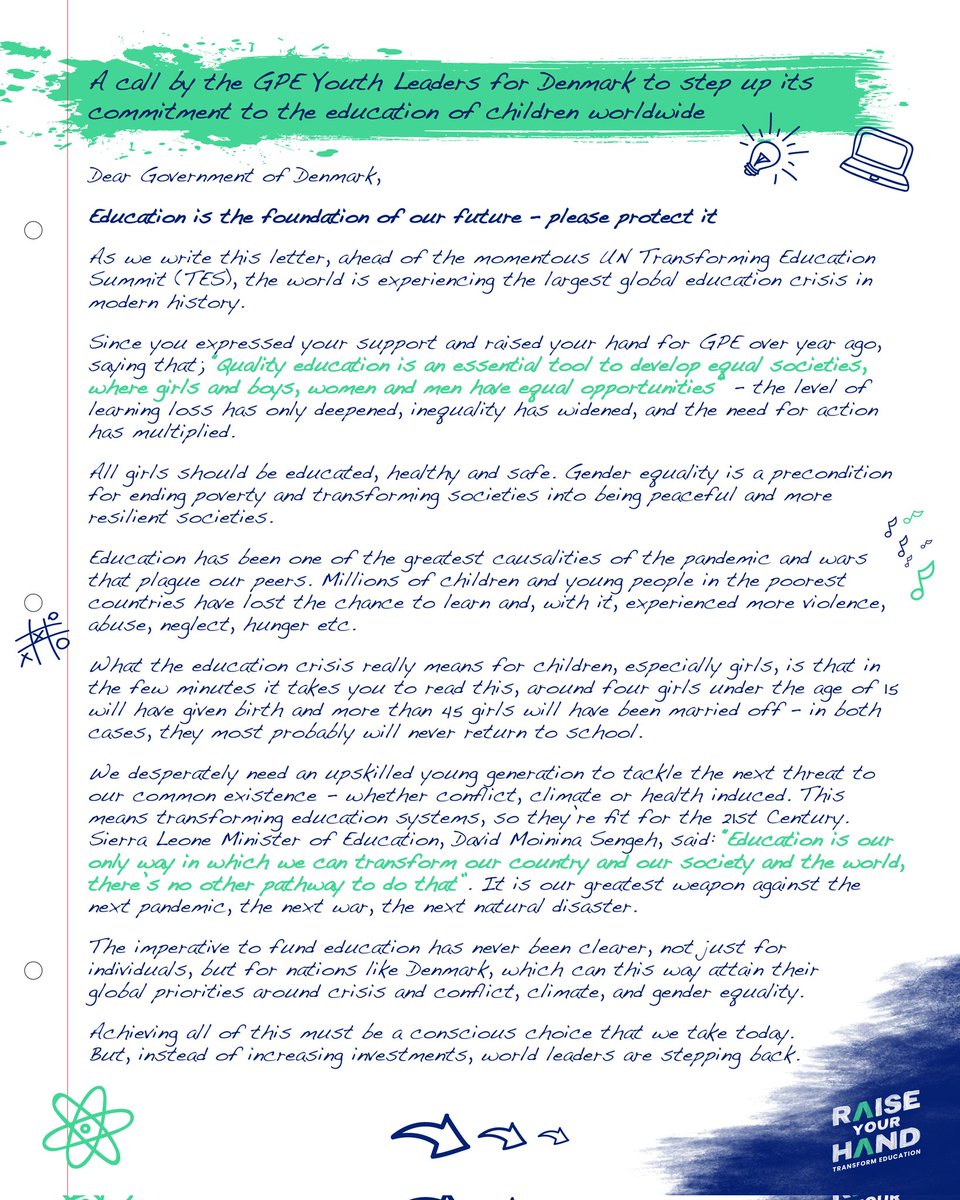 A call by the GPE Youth Leaders for Denmark to step up its
commitment to the education of children worldwide
Dear Government of Denmark,
Education is the foundation of our future - please protect it
As we write this letter, ahead of the momentous UN Transforming Education
Summit (TES), the world is experiencing the largest global education crisis in
modern history.
Since you expressed your support and raised your hand for GPE over year ago,
saying that; "Quality education is an essential tool to develop equal societies,
where girls and boys, women and men have equal opportunities" - the level of
learning loss has only deepened, inequality has widened, and the need for action
has multiplied.
All girls should be educated, healthy and safe. Gender equality is a precondition
for ending poverty and transforming societies into being peaceful and more
resilient societies.
Education has been one of the greatest causalities of the pandemic and wars
that plague our peers. Millions of children and young people in the poorest
countries have lost the chance to learn and, with it, experienced more violence,
abuse, neglect, hunger etc.
What the education crisis really means for children, especially girls, is that in
the few minutes it takes you to read this, around four girls under the age of 15
will have given birth and more than 45 girls will have been married off - in both
cases, they most probably will never return to school.
We desperately need an upskilled young generation to tackle the next threat to
our common existence - whether conflict, climate or health induced. This
means transforming education systems, so they're fit for the 21st Century.
Sierra Leone Minister of Education, David Moinina Sengeh, said: "Education is our
only way in which we can transform our country and our society and the world,
there's no other pathway to do that". It is our greatest weapon against the
next pandemic, the next war, the next natural disaster.
The imperative to fund education has never been clearer, not just for
individuals, but for nations like Denmark, which can this way attain their
global priorities around crisis and conflict, climate, and gender equality.
Achieving all of this must be a conscious choice that we take today.
But, instead of increasing investments, world leaders are stepping back.
RAISE
YOUR
HAND
TRANSFORM EDUCATION